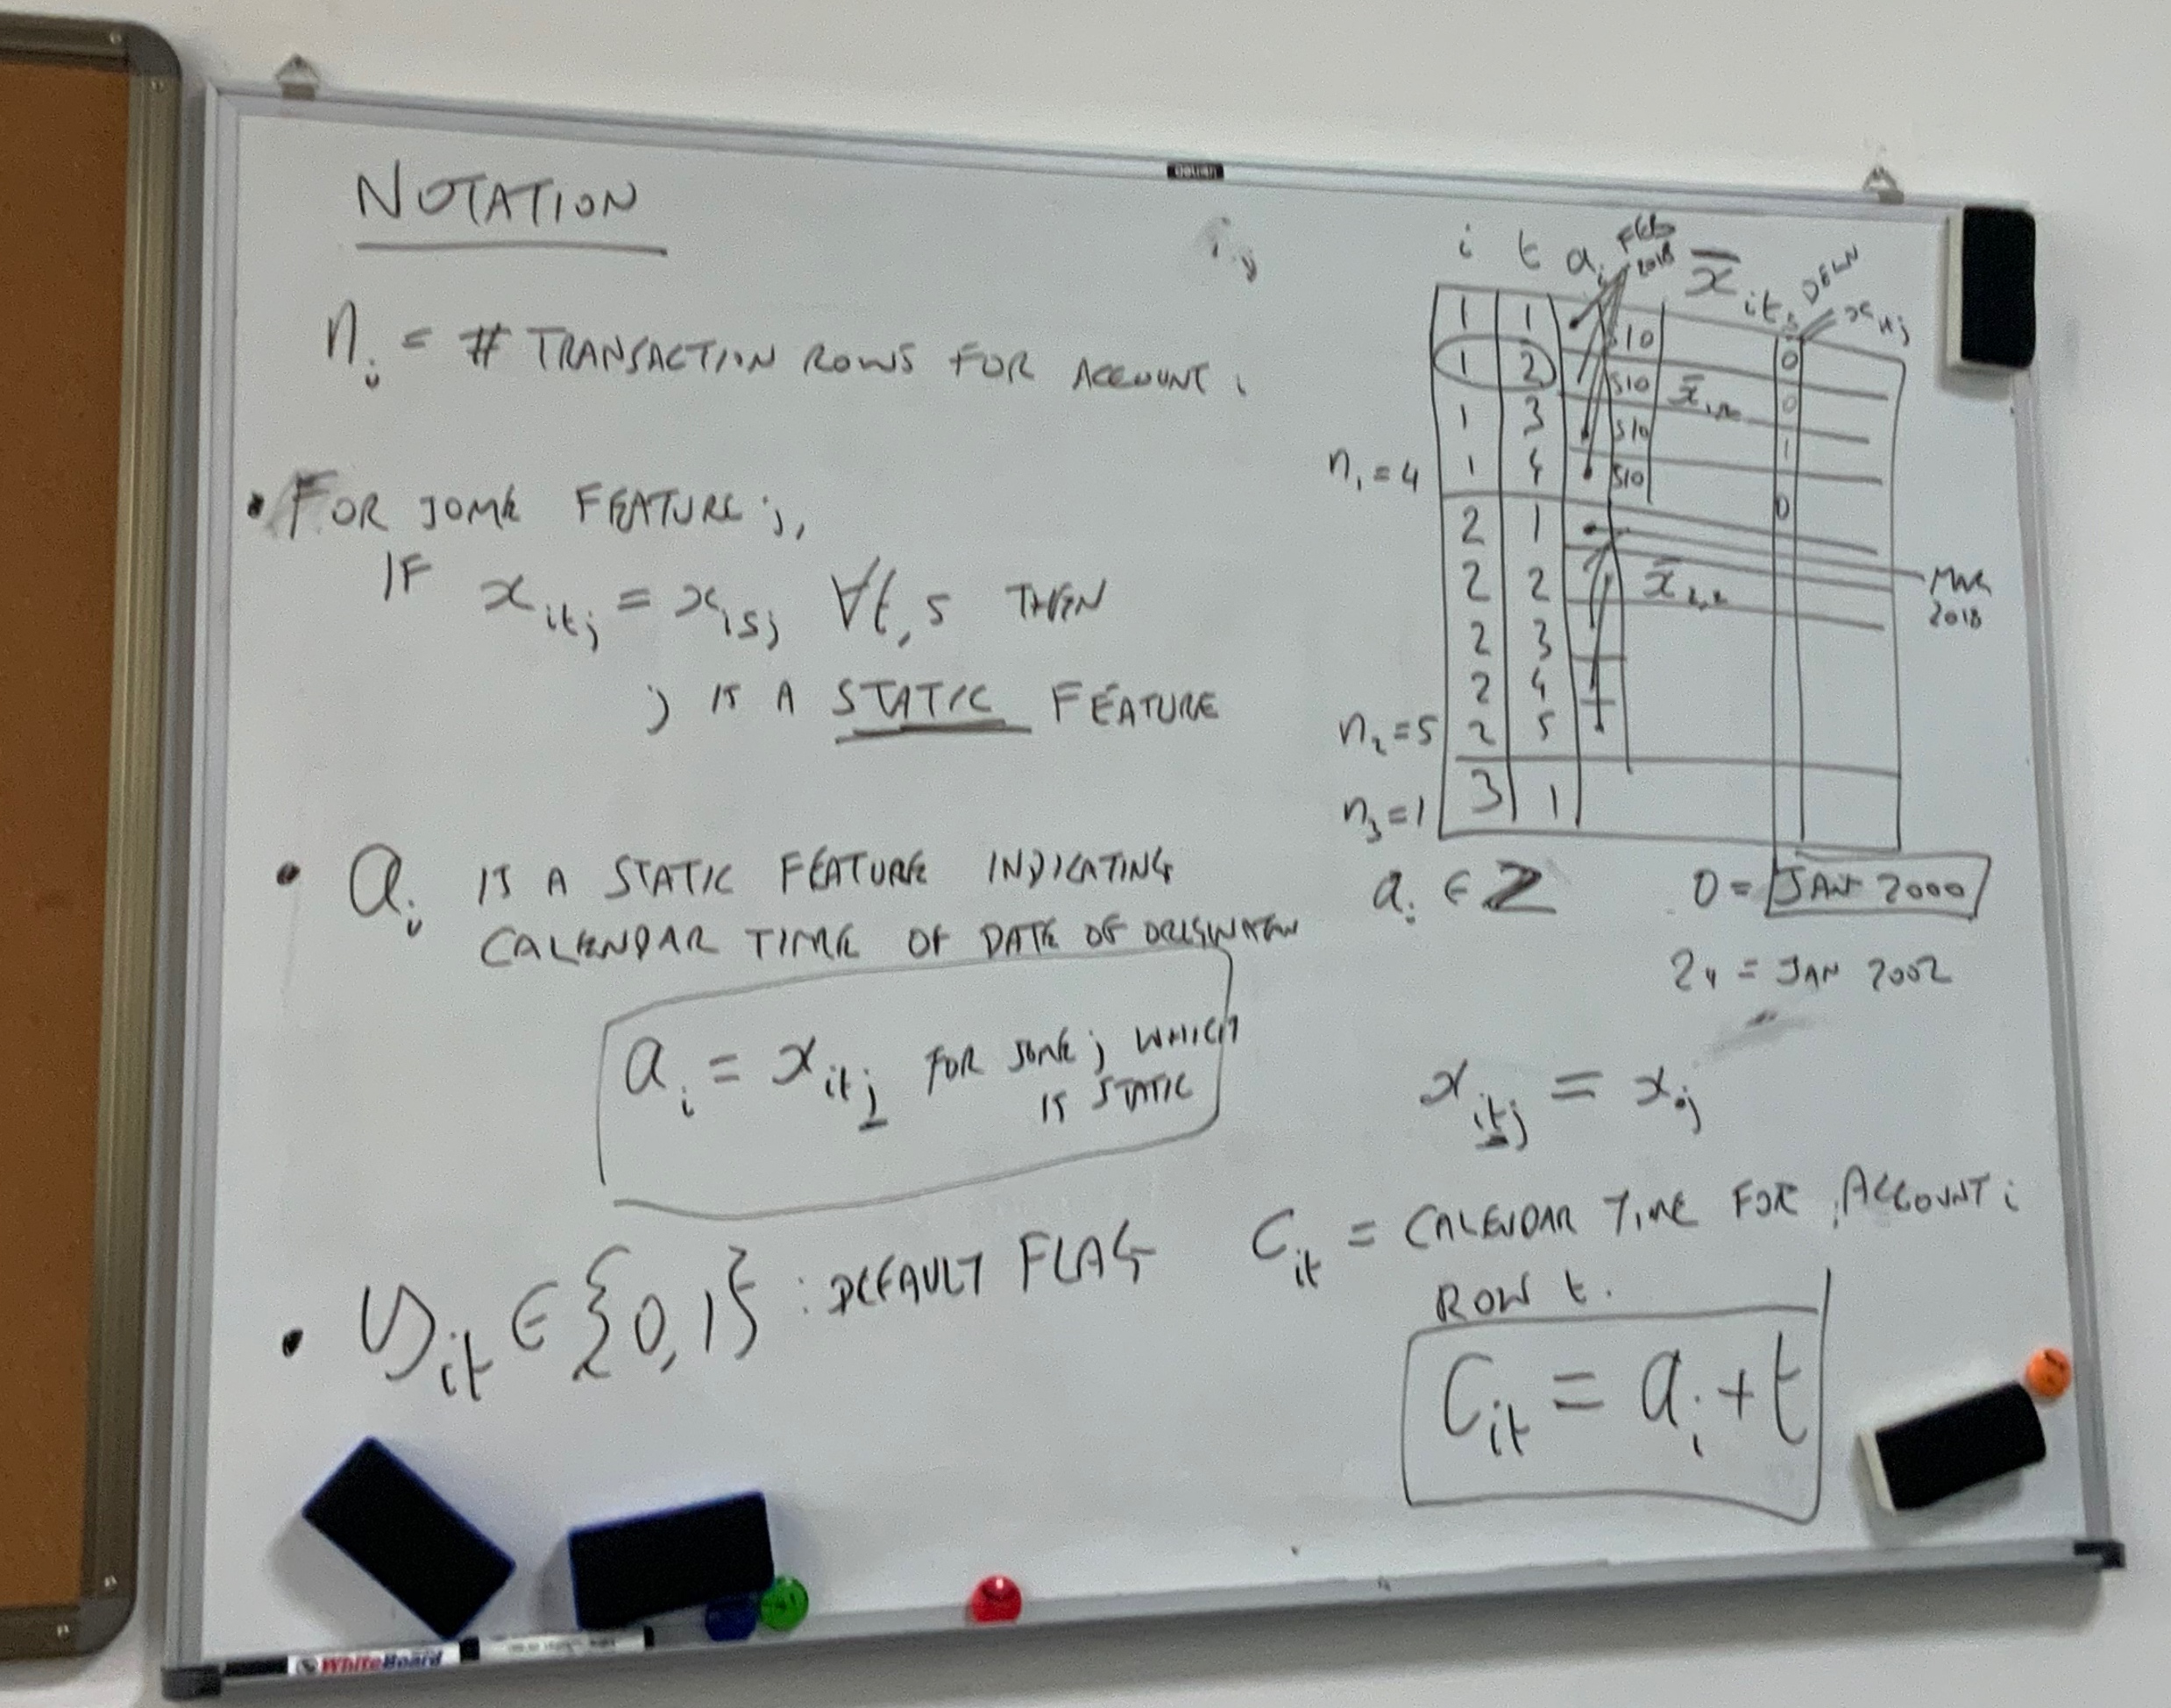 NOTATION
n_i = # TRANSACTION ROWS FOR ACCOUNT i
• FOR SOME FEATURE j,
IF x_itj = x_isj ∀t, s THEN
j IS A STATIC FEATURE
• a_i IS A STATIC FEATURE INDICATING
CALENDAR TIME OF DATE OF ORIGINATION
a_i = x_itj FOR SOME j WHICH
IS STATIC
• y_it ∈ {0,1} : DEFAULT FLAG
i t a_i FEB 2018 x̄_it DELN
1 1 510 0
1 2 510 x̄_1,2 0
1 3 510 1
n_1 = 4 1 4 510 0
2 1
2 2 x̄_2,2 MAR 2018
2 3
2 4
n_2 = 5 2 5
n_3 = 1 3 1
a_i ∈ Z 0 = JAN 2000
24 = JAN 2002
x_itj = x_ij
C_it = CALENDAR TIME FOR ACCOUNT i
ROW t.
C_it = a_i + t
WhiteBoard